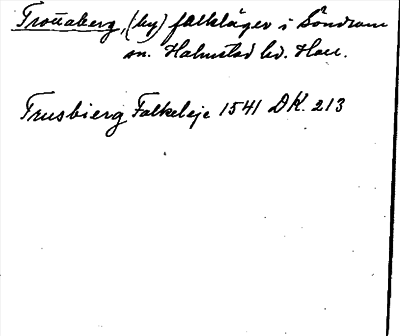 Trottaberg, (by) falkläger i Söndrum
sn. Halmstad hd. Hall.
Trusbierg Falkeleje 1541 DK. 213